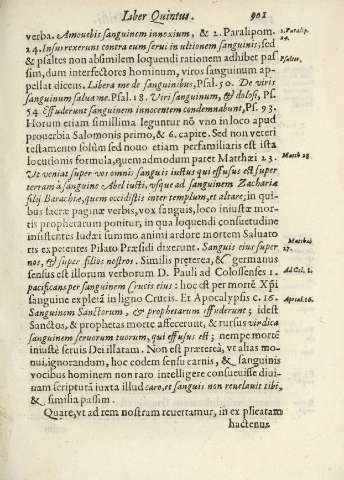 Liber Quintus. 901
verba. Amouebis sanguinem innoxium, & 2. Paralipom.
2. Paralip. 24.
24. Insurrexerunt contra eum serui in vltionem sanguinis, sed
& psaltes non absimilem loquendi rationem adhibet pas
Psaltes.
sim, dum interfectores hominum, viros sanguinum ap-
pellat dicens. Libera me de sanguinibus, Psal. 50. De viris
sanguinum salua me. Psal. 18. Viri sanguinum, & dolosi, Ps.
54 Effuderunt sanguinem innocentem condemnabunt, Ps. 93.
Horum etiam simillima leguntur nõ vno in loco apud
prouerbia Salomonis primo, & 6. capite. Sed non veteri
testamento solùm sed nouo etiam perfamiliaris est ista
locutionis formula, quemadmodum patet Matthæi 23.
Matth 28
Vt veniat super vos omnis sanguis iustus qui effusus est super
terram à sanguine Abel iusti, vsque ad sanguinem Zachariæ
filij Barachiæ, quem occidistis inter templum, et altare; in qui-
bus sacræ paginæ verbis, vox sanguis, loco iniustæ mor-
tis prophetarum ponitur, in qua loquendi consuetudine
insistentes Iudæi summo animi ardore mortem Saluato
ris expetentes Pilato Præsidi dixerunt. Sanguis eius super
nos, & super filios nostros. Similis præterea, & germanus
Matthæi 27.
sensus est illorum verborum D. Pauli ad Colossenses 1.
Ad Col. 1.
pacificans per sanguinem Crucis eius: hoc est per mortẽ Xp̃i
sanguine expleta in ligno Crucis. Et Apocalypsis c. 16.
Apocal. 16.
Sanguinem Sanctorum, & prophetarum effuderunt; id est
Sanctos, & prophetas morte affecerunt, & rursus vindica
sanguinem seruorum tuorum, qui effusus est; nempe morte
iniustè seruis Dei illatam. Non est præterea, vt alias mo-
nui, ignorandum, hoc eodem sensu carnis, & sanguinis
vocibus hominem non raro intelligere consueuisse diui-
nam scripturã iuxta illud caro, et sanguis non reuelauit tibi,
& similia passim.
Quare, vt ad rem nostram reuertamur, in ex plicatam
hactenus